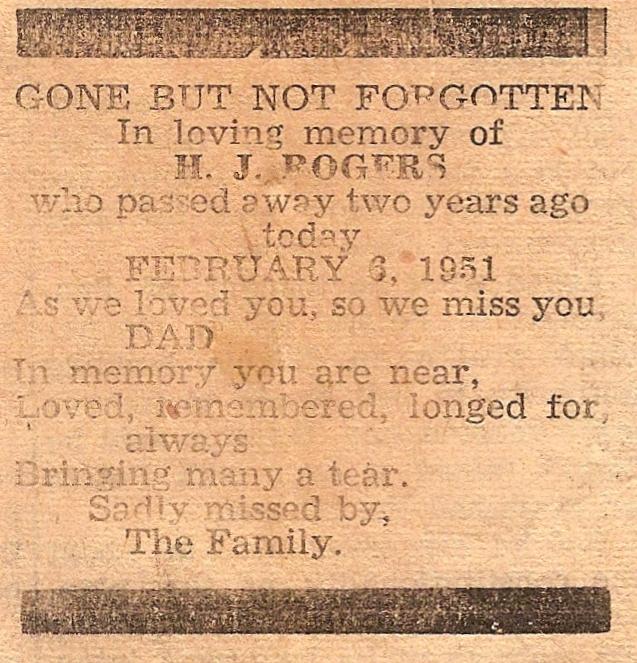 GONE BUT NOT FORGOTTEN
In loving memory of
H. J. ROGERS
who passed away two years ago
today
FEBRUARY 6, 1951
As we loved you, so we miss you,
DAD
In memory you are near,
Loved, remembered, longed for,
always
Bringing many a tear.
Sadly missed by,
The Family.